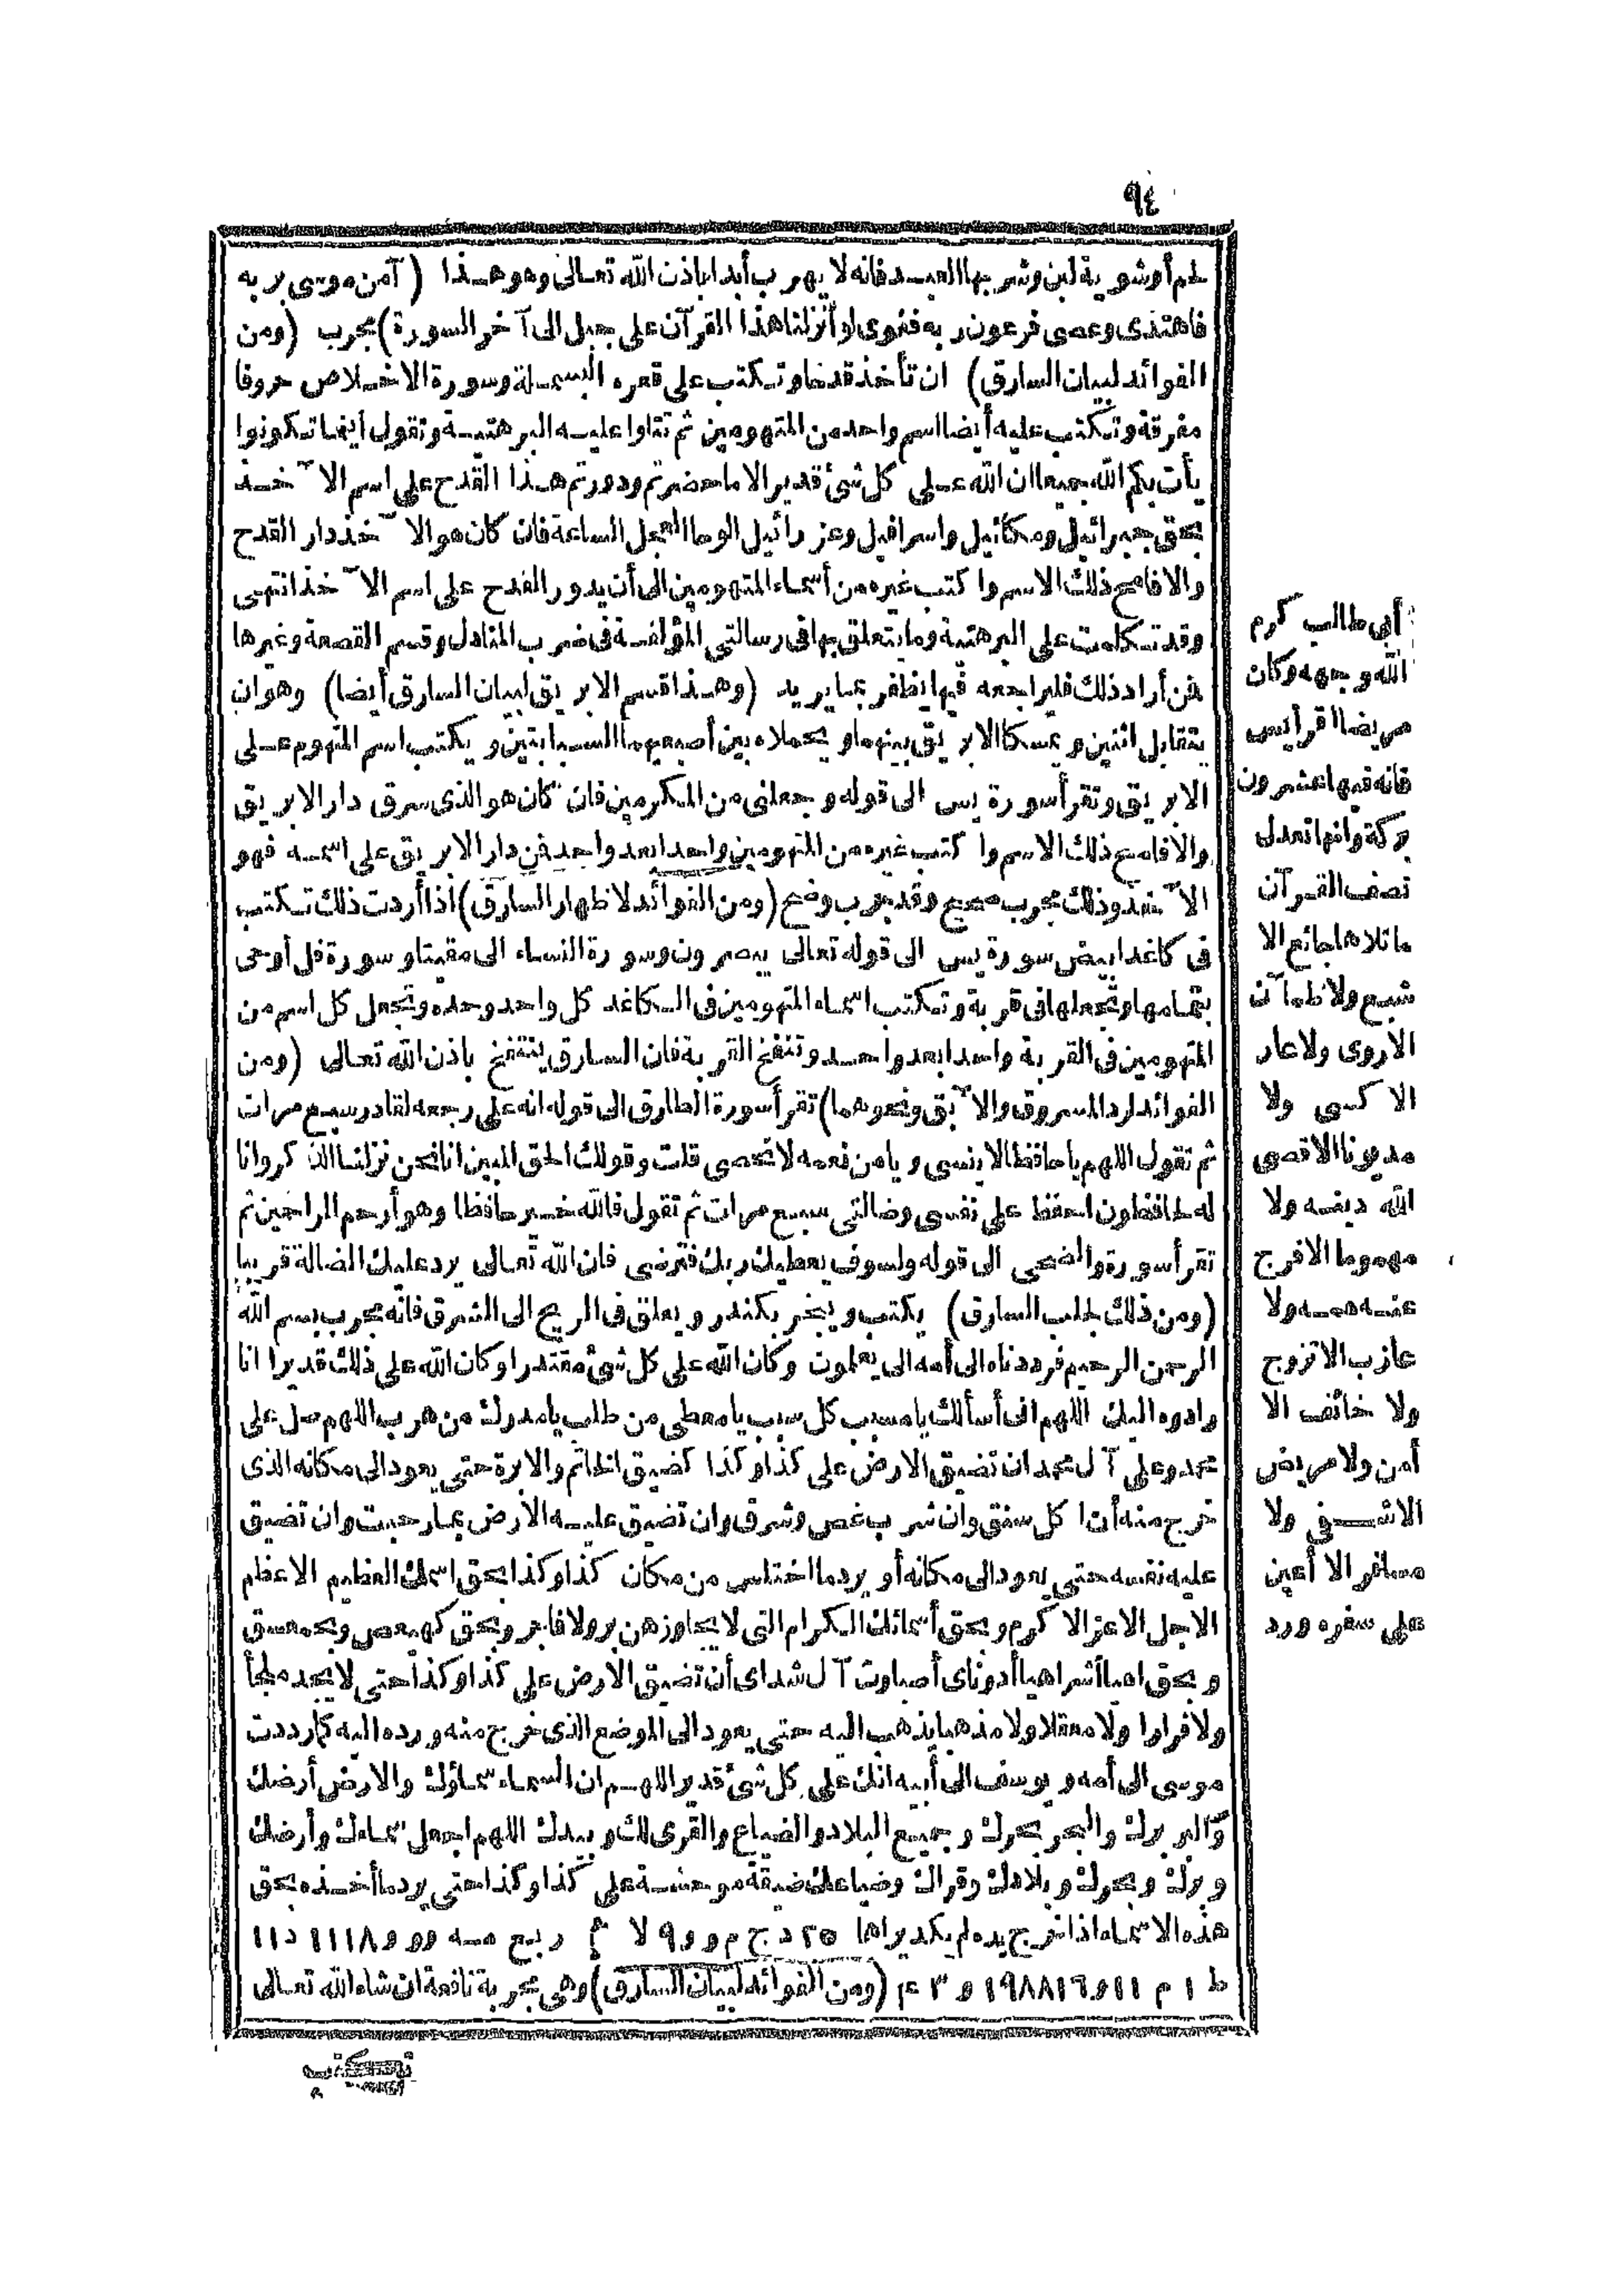 ٩٤
لحم أو شوية لبن وشربها العبد فانه لا يهرب أبدا باذن الله تعالى وهو هذا (آمن موسى بربه
فاهتدى وعصى فرعون ربه فغوى لو أنزلنا هذا القرآن على جبل الى آخر السورة) مجرب (ومن
الفوائد لبيان السارق) ان تأخذ قدحا وتكتب على قعره البسملة وسورة الاخلاص حروفا
مفرقة وتكتب عليه أيضا اسم واحد من المتهومين ثم تتلوا عليه البرهتية وتقول أينما تكونوا
يأت بكم الله جميعا ان الله على كل شئ قدير الا ما حضرتم ودورتم هذا القدح على اسم الآخذ
بحق جبرائيل ومكائيل واسرافيل وعزرائيل الوحا العجل الساعة فان كان هو الآخذ دار القدح
والا فامح ذلك الاسم واكتب غيره من أسماء المتهومين الى أن يدور القدح على اسم الآخذ انتهى
وقد تكلمت على البرهتية وما يتعلق بها فى رسالتى المؤلفة فى ضرب المنادل وقسم القصعة وغيرها
فمن أراد ذلك فليراجعه فيها يظفر بما يريد (وهذا قسم الابريق لبيان السارق أيضا) وهو ان
يتقابل اثنين ويمسكا الابريق بينهما ويحملاه بين أصبعيهما السبابتين ويكتب اسم المتهوم على
الابريق وتقرأ سورة يس الى قوله وجعلنى من المكرمين فان كان هو الذى سرق دار الابريق
والا فامح ذلك الاسم واكتب غيره من المتهومين واحدا بعد واحد فمن دار الابريق على اسمه فهو
الآخذ وذلك مجرب صحيح وقد جرب وصح (ومن الفوائد لاظهار السارق) اذا أردت ذلك تكتب
فى كاغد ابيض سورة يس الى قوله تعالى يبصرون وسورة النساء الى مقيتا وسورة قل أوحى
بتمامها وتجعلها فى قربة وتكتب اسماء المتهومين فى الكاغد كل واحد وحده وتجعل كل اسم من
المتهومين فى القربة واحدا بعد واحد وتنفخ القربة فان السارق ينتفخ باذن الله تعالى (ومن
الفوائد لرد المسروق والآبق ونحوهما) تقرأ سورة الطارق الى قوله انه على رجعه لقادر سبع مرات
ثم تقول اللهم يا حافظا لا ينسى ويا من نعمه لا تحصى قلت وقولك الحق المبين انا نحن نزلنا الذكر وانا
له لحافظون احفظ على نفسى وضالتى سبع مرات ثم تقول فالله خير حافظا وهو أرحم الراحمين ثم
تقرأ سورة والضحى الى قوله ولسوف يعطيك ربك فترضى فان الله تعالى يرد عليك الضالة قريبا
(ومن ذلك لجلب السارق) يكتب ويبخر بكندر ويعلق فى الريح الى الشرق فانه مجرب بسم الله
الرحمن الرحيم فرددناه الى أمه الى يعلمون وكان الله على كل شئ مقتدرا وكان الله على ذلك قديرا انا
رادوه اليك اللهم انى أسألك يا مسبب كل سبب يا معطى من طلب يا مدرك من هرب اللهم صل على
محمد وعلى آل محمد ان تضيق الارض على كذا وكذا كضيق الخاتم والابرة حتى يعود الى مكانه الذى
خرج منه أن اكل سنق وان شرب غص وشرق وان تضيق عليه الارض بما رحبت وان تضيق
عليه نفسه حتى يعود الى مكانه أو يرد ما اختلس من مكان كذا وكذا بحق اسمك العظيم الاعظم
الاجل الاعز الاكرم وبحق أسمائك الكرام التى لا يجاوزهن بر ولا فاجر وبحق كهيعص وبحمعسق
وبحق اهيا أشراهيا أدوناى أصباوت آل شداى أن تضيق الارض على كذا وكذا حتى لا يجد ملجأ
ولا فرارا ولا معقلا ولا مذهبا يذهب اليه حتى يعود الى الموضع الذى خرج منه ورده اليه كما رددت
موسى الى أمه ويوسف الى أبيه انك على كل شئ قدير اللهم ان السماء سماؤك والارض أرضك
والبر برك والبحر بحرك وجميع البلاد والضياع والقرى لك وبيدك اللهم اجعل سماءك وأرضك
وبرك وبحرك وبلادك وقراك وضياعك ضيقة موحشة على كذا وكذا حتى يرد ما أخذه بحق
هذه الاسماء اذا أخرج يده لم يكد يراها ٢٥ د ج م و و ٩ لا ربع مه وو و ١١١٨ د ١١
ط ١ م ١١ و ١٩٨٨١٦ و ٣ ء م (ومن الفوائد لبيان السارق) وهى مجربة نافعة ان شاء الله تعالى
تكتب
أبى طالب كرم
الله وجهه وكان
مريضا اقرأ يس
فانه فيها عشرون
بركة وانها تعدل
نصف القرآن
ما تلاها جائع الا
شبع ولا ظمآن
الا روى ولا عار
الا كسى ولا
مديونا الا قضى
الله دينه ولا
مهموما الا فرج
عنه همه ولا
عازب الا تزوج
ولا خائف الا
أمن ولا مريض
الا شفى ولا
مسافر الا أعين
على سفره ورد